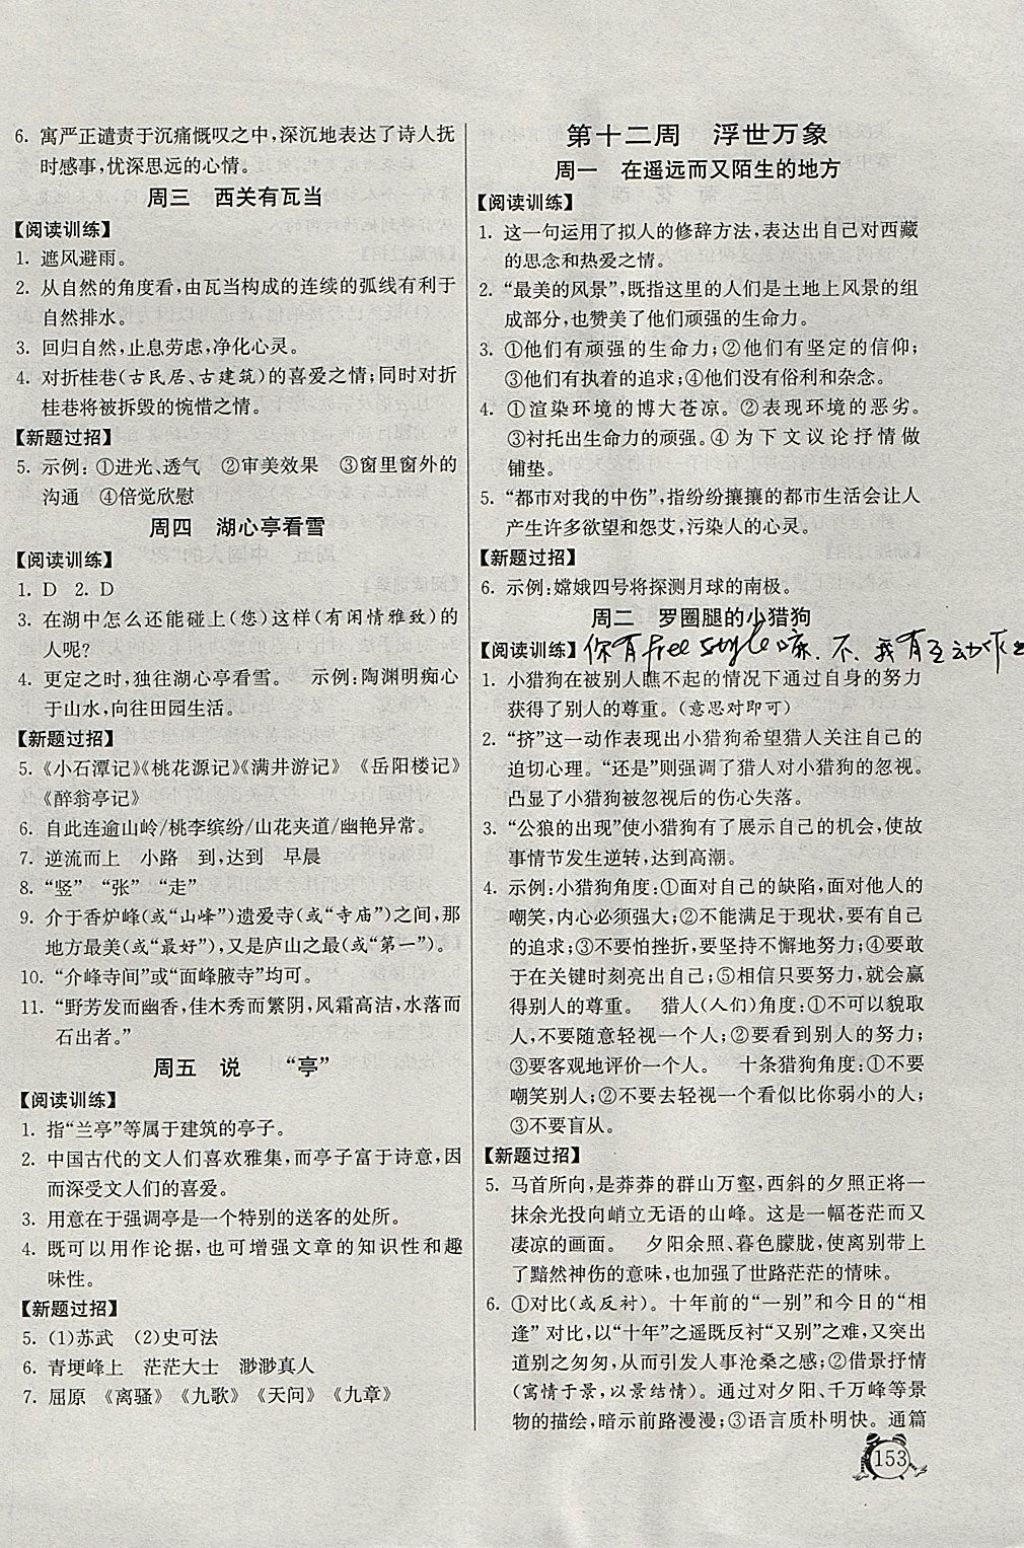 6. 寓严正谴责于沉痛慨叹之中,深沉地表达了诗人抚
时感事,忧深思远的心情。
周三 西关有瓦当
【阅读训练】
1. 遮风避雨。
2. 从自然的角度看,由瓦当构成的连续的弧线有利于
自然排水。
3. 回归自然,止息劳虑,净化心灵。
4. 对折桂巷(古民居、古建筑)的喜爱之情;同时对折
桂巷将被拆毁的惋惜之情。
【新题过招】
5. 示例:①进光、透气 ②审美效果 ③窗里窗外的
沟通 ④倍觉欣慰
周四 湖心亭看雪
【阅读训练】
1. D 2. D
3. 在湖中怎么还能碰上(您)这样(有闲情雅致)的
人呢?
4. 更定之时,独往湖心亭看雪。 示例:陶渊明痴心
于山水,向往田园生活。
【新题过招】
5.《小石潭记》《桃花源记》《满井游记》《岳阳楼记》
《醉翁亭记》
6. 自此连逾山岭/桃李缤纷/山花夹道/幽艳异常。
7. 逆流而上 小路 到,达到 早晨
8. “竖” “张” “走”
9. 介于香炉峰(或“山峰”)遗爱寺(或“寺庙”)之间,那
地方最美(或“最好”),又是庐山之最(或“第一”)。
10. “介峰寺间”或“面峰腋寺”均可。
11. “野芳发而幽香,佳木秀而繁阴,风霜高洁,水落而
石出者。”
周五 说 “亭”
【阅读训练】
1. 指“兰亭”等属于建筑的亭子。
2. 中国古代的文人们喜欢雅集,而亭子富于诗意,因
而深受文人们的喜爱。
3. 用意在于强调亭是一个特别的送客的处所。
4. 既可以用作论据,也可增强文章的知识性和趣
味性。
【新题过招】
5. (1)苏武 (2)史可法
6. 青埂峰上 茫茫大士 渺渺真人
7. 屈原 《离骚》《九歌》《天问》《九章》
第十二周 浮世万象
周一 在遥远而又陌生的地方
【阅读训练】
1. 这一句运用了拟人的修辞方法,表达出自己对西藏
的思念和热爱之情。
2. “最美的风景”,既指这里的人们是土地上风景的组
成部分,也赞美了他们顽强的生命力。
3. ①他们有顽强的生命力;②他们有坚定的信仰;
③他们有执着的追求;④他们没有俗利和杂念。
4. ①渲染环境的博大苍凉。②表现环境的恶劣。
③衬托出生命力的顽强。④为下文议论抒情做
铺垫。
5. “都市对我的中伤”,指纷纷攘攘的都市生活会让人
产生许多欲望和怨艾,污染人的心灵。
【新题过招】
6. 示例:嫦娥四号将探测月球的南极。
周二 罗圈腿的小猎狗
【阅读训练】你有free style嘛、不、我有互动作业
1. 小猎狗在被别人瞧不起的情况下通过自身的努力
获得了别人的尊重。(意思对即可)
2. “挤”这一动作表现出小猎狗希望猎人关注自己的
迫切心理。“还是”则强调了猎人对小猎狗的忽视。
凸显了小猎狗被忽视后的伤心失落。
3. “公狼的出现”使小猎狗有了展示自己的机会,使故
事情节发生逆转,达到高潮。
4. 示例:小猎狗角度:①面对自己的缺陷,面对他人的
嘲笑,内心必须强大;②不能满足于现状,要有自己
的追求;③不要怕挫折,要坚持不懈地努力;④要敢
于在关键时刻亮出自己;⑤相信只要努力,就会赢
得别人的尊重。 猎人(人们)角度:①不可以貌取
人,不要随意轻视一个人;②要看到别人的努力;
③要客观地评价一个人。 十条猎狗角度:①不要
嘲笑别人;②不要目空一切,尤其是比你弱小的人;
③不要盲从。
【新题过招】
5. 马首所向,是莽莽的群山万壑,西斜的夕照正将一
抹余光投向峭立无语的山峰。这是一幅苍茫而又
凄凉的画面。 夕阳余照、暮色朦胧,使诗歌增添
了黯然神伤的意味,也加强了世路茫茫的情味。
6. ①对比(或反衬)。十年前的“一别”和今日的“相
逢”对比,以“十年”之遥既反衬“又别”之难,又突出
道别之匆匆,从而引发人事沧桑之感;②借景抒情
(寓情于景,以景结情)。通过对夕阳、千万峰等景
物的描绘,暗示前路漫漫;③语言质朴明快。通篇
153